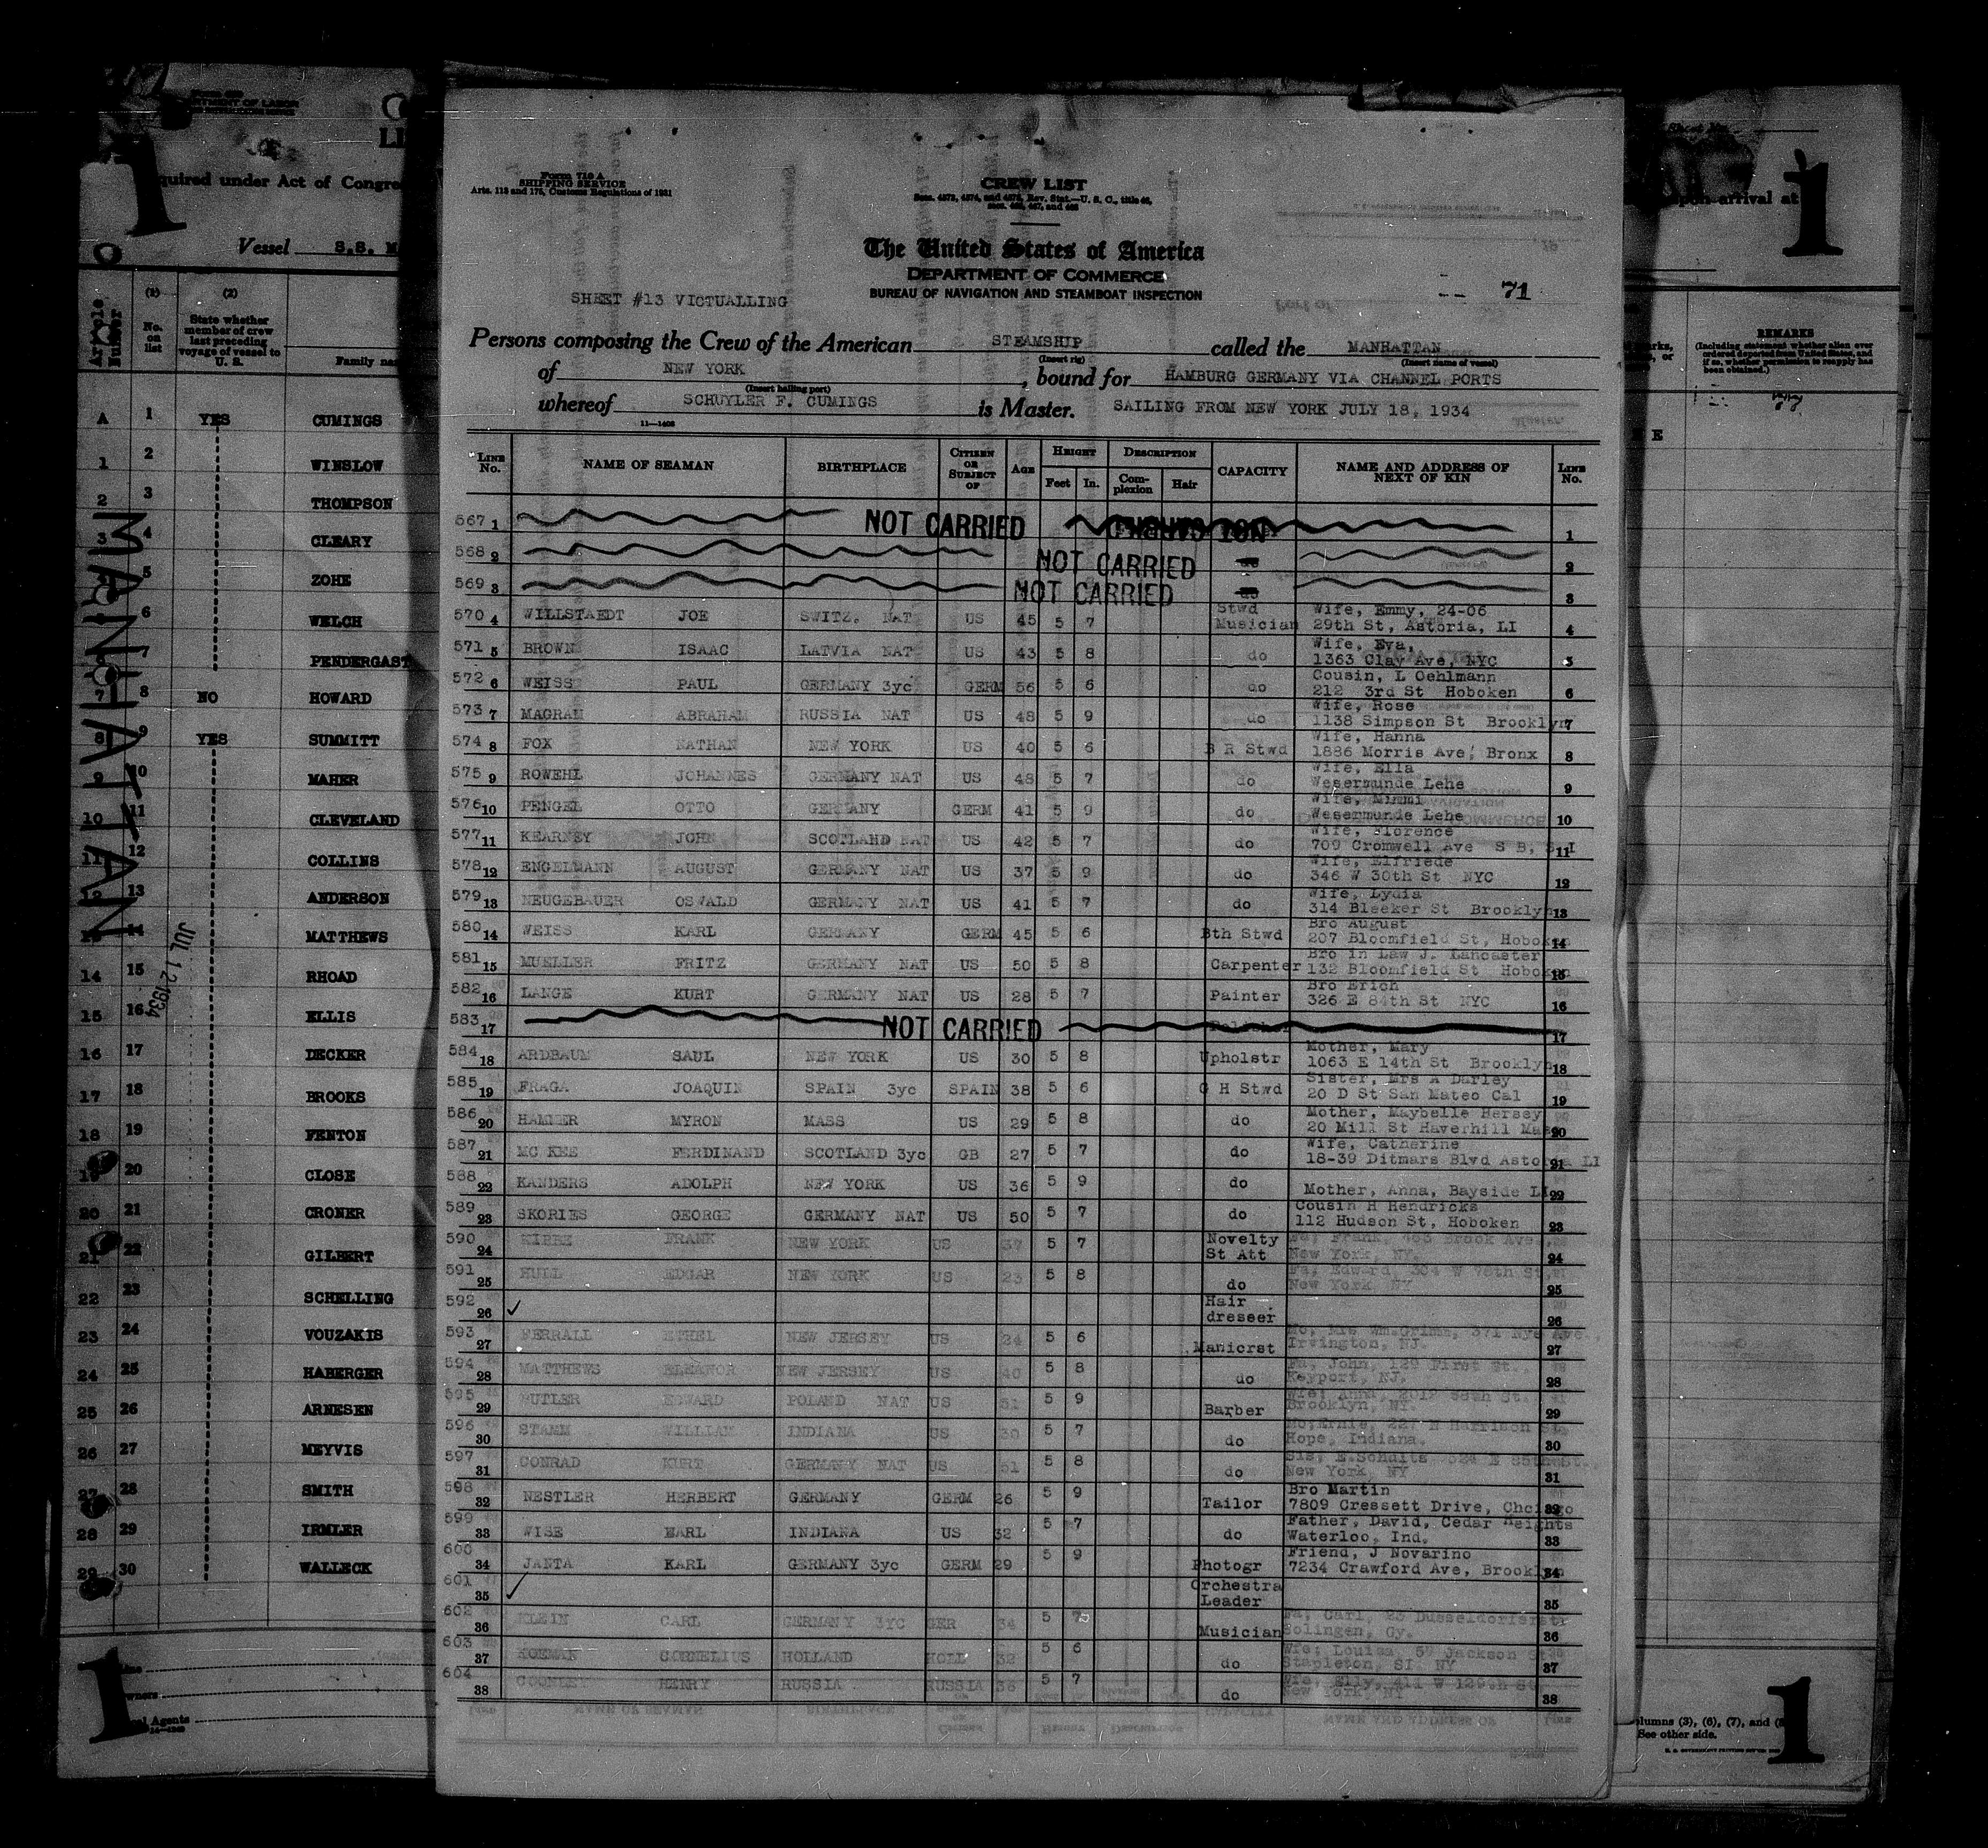 SHIPPING SERVICE
Arts. 113 and 175, Customs Regulations of 1931
CREW LIST
The United States of America
DEPARTMENT OF COMMERCE
BUREAU OF NAVIGATION AND STEAMBOAT INSPECTION
71
SHEET #13 VICTUALLING
Persons composing the Crew of the American STEAMSHIP called the MANHATTAN
(Insert rig) (Insert name of vessel)
of NEW YORK, bound for HAMBURG GERMANY VIA CHANNEL PORTS
(Insert hailing port)
whereof SCHUYLER F. CUMINGS is Master. SAILING FROM NEW YORK JULY 18, 1934
LINE No. NAME OF SEAMAN BIRTHPLACE CITIZEN OR SUBJECT OF AGE HEIGHT Feet In. DESCRIPTION Complexion Hair CAPACITY NAME AND ADDRESS OF NEXT OF KIN LINE No.
567 1 NOT CARRIED 1
568 2 NOT CARRIED 2
569 3 NOT CARRIED 3
570 4 WILLSTAEDT JOE SWITZ. NAT US 45 5 7 Stwd Musician Wife, Emmy, 24-06 29th St, Astoria, LI 4
571 5 BROWN ISAAC LATVIA NAT US 43 5 8 do Wife, Eva, 1363 Clay Ave, NYC 5
572 6 WEISS PAUL GERMANY 3yc GERM 56 5 6 do Cousin, L Oehlmann 212 3rd St Hoboken 6
573 7 MAGRAM ABRAHAM RUSSIA NAT US 48 5 9 do Wife, Rose 1138 Simpson St Brooklyn 7
574 8 FOX NATHAN NEW YORK US 40 5 6 B R Stwd Wife, Hanna 1886 Morris Ave, Bronx 8
575 9 ROWEHL JOHANNES GERMANY NAT US 48 5 7 do Wife, Ella Wesermunde Lehe 9
576 10 PENGEL OTTO GERMANY GERM 41 5 9 do Wife, Mimmi Wesermunde Lehe 10
577 11 KEARNEY JOHN SCOTLAND NAT US 42 5 7 do Wife, Florence 709 Cromwell Ave S B, S I 11
578 12 ENGELMANN AUGUST GERMANY NAT US 37 5 9 do Wife, Elfriede 346 W 30th St NYC 12
579 13 NEUGEBAUER OSWALD GERMANY NAT US 41 5 7 do Wife, Lydia 314 Bleeker St Brooklyn 13
580 14 WEISS KARL GERMANY GERM 45 5 6 Bth Stwd Bro August 207 Bloomfield St, Hoboken 14
581 15 MUELLER FRITZ GERMANY NAT US 50 5 8 Carpenter Bro in Law J. Lancaster 132 Bloomfield St Hoboken 15
582 16 LANGE KURT GERMANY NAT US 28 5 7 Painter Bro Erich 326 E 84th St NYC 16
583 17 NOT CARRIED 17
584 18 ARDBAUM SAUL NEW YORK US 30 5 8 Upholstr Mother, Mary 1063 E 14th St Brooklyn 18
585 19 FRAGA JOAQUIN SPAIN 3yc SPAIN 38 5 6 G H Stwd Sister, Mrs A Darley 20 D St San Mateo Cal 19
586 20 HAMMER MYRON MASS US 29 5 8 do Mother, Maybelle Hersey 20 Mill St Haverhill Mass 20
587 21 MC KEE FERDINAND SCOTLAND 3yc GB 27 5 7 do Wife, Catherine 18-39 Ditmars Blvd Astoria LI 21
588 22 KANDERS ADOLPH NEW YORK US 36 5 9 do Mother, Anna, Bayside LI 22
589 23 SKORIES GEORGE GERMANY NAT US 50 5 7 do Cousin H Hendricks 112 Hudson St, Hoboken 23
590 24 FRANK NEW YORK US 37 5 7 Novelty St Att Fa, Frank, Brook Ave, New York, NY. 24
591 25 HULL EDGAR NEW YORK US 23 5 8 do Fa, Edward, 304 W 78th St, New York NY 25
592 26 ✓ Hair dreseer 26
593 27 FERRALL ETHEL NEW JERSEY US 24 5 6 Manicrst Mo, Mrs Wm.Grimm, 371 Nye Ave., Irvington, NJ. 27
594 28 MATTHEWS ELEANOR NEW JERSEY US 40 5 8 do Fa, John, 129 First St., Keyport, NJ. 28
595 29 BUTLER EDWARD POLAND NAT US 51 5 9 Barber Wfe, Anna, 2012 St. Brooklyn, NY. 29
596 30 STAMM WILLIAM INDIANA US 30 5 7 do 227 N Harrison St. Hope, Indiana. 30
597 31 CONRAD KURT GERMANY NAT US 51 5 8 do Sis, E.Schults 324 E 85th St., New York, NY 31
598 32 NESTLER HERBERT GERMANY GERM 26 5 9 Tailor Bro Martin 7809 Cressett Drive, Chcigo 32
599 33 WISE EARL INDIANA US 32 5 7 do Father, David, Cedar Heights Waterloo, Ind. 33
600 34 JANTA KARL GERMANY 3yc GERM 29 5 9 Photogr Friend, J Novarino 7234 Crawford Ave, Brooklyn 34
601 35 ✓ Orchestra Leader 35
602 36 KLEIN CARL GERMANY 3YC GER 34 5 Musician Fa, Carl, 23 Dusseldorferstr Solingen, Gy. 36
603 37 KOEMAN CORNELIUS HOLLAND HOLL 32 5 6 do Wfe, Louisa, 57 Jackson St Stapleton, SI NY 37
604 38 HENRY RUSSIA RUSSIA 36 5 7 do Wfe, Elly, 411 W 129th St, New York, NY 38
quired under Act of Congre
Vessel S.S. M
(1) (2)
No. on list
State whether member of crew last preceding voyage of vessel to U. S.
Family na
A 1 YES CUMINGS
1 2 WINSLOW
2 3 THOMPSON
3 4 CLEARY
5 ZOHE
6 WELCH
7 PENDERGAST
7 8 NO HOWARD
8 9 YES SUMMITT
9 10 MAHER
10 11 CLEVELAND
11 12 COLLINS
12 13 ANDERSON
13 14 MATTHEWS
14 15 RHOAD
15 16 ELLIS
16 17 DECKER
17 18 BROOKS
18 19 FENTON
19 20 CLOSE
20 21 CRONER
21 22 GILBERT
22 23 SCHELLING
23 24 VOUZAKIS
24 25 HABERGER
25 26 ARNESEN
26 27 MEYVIS
27 28 SMITH
28 29 IRMLER
29 30 WALLECK
MANHATTAN
JUL 12 1934
1
1
pon arrival at
REMARKS
(Including statement whether alien ever ordered deported from United States, and if so, whether permission to reapply has been obtained.)
olumns (3), (6), (7), and (8
See other side.
1
1